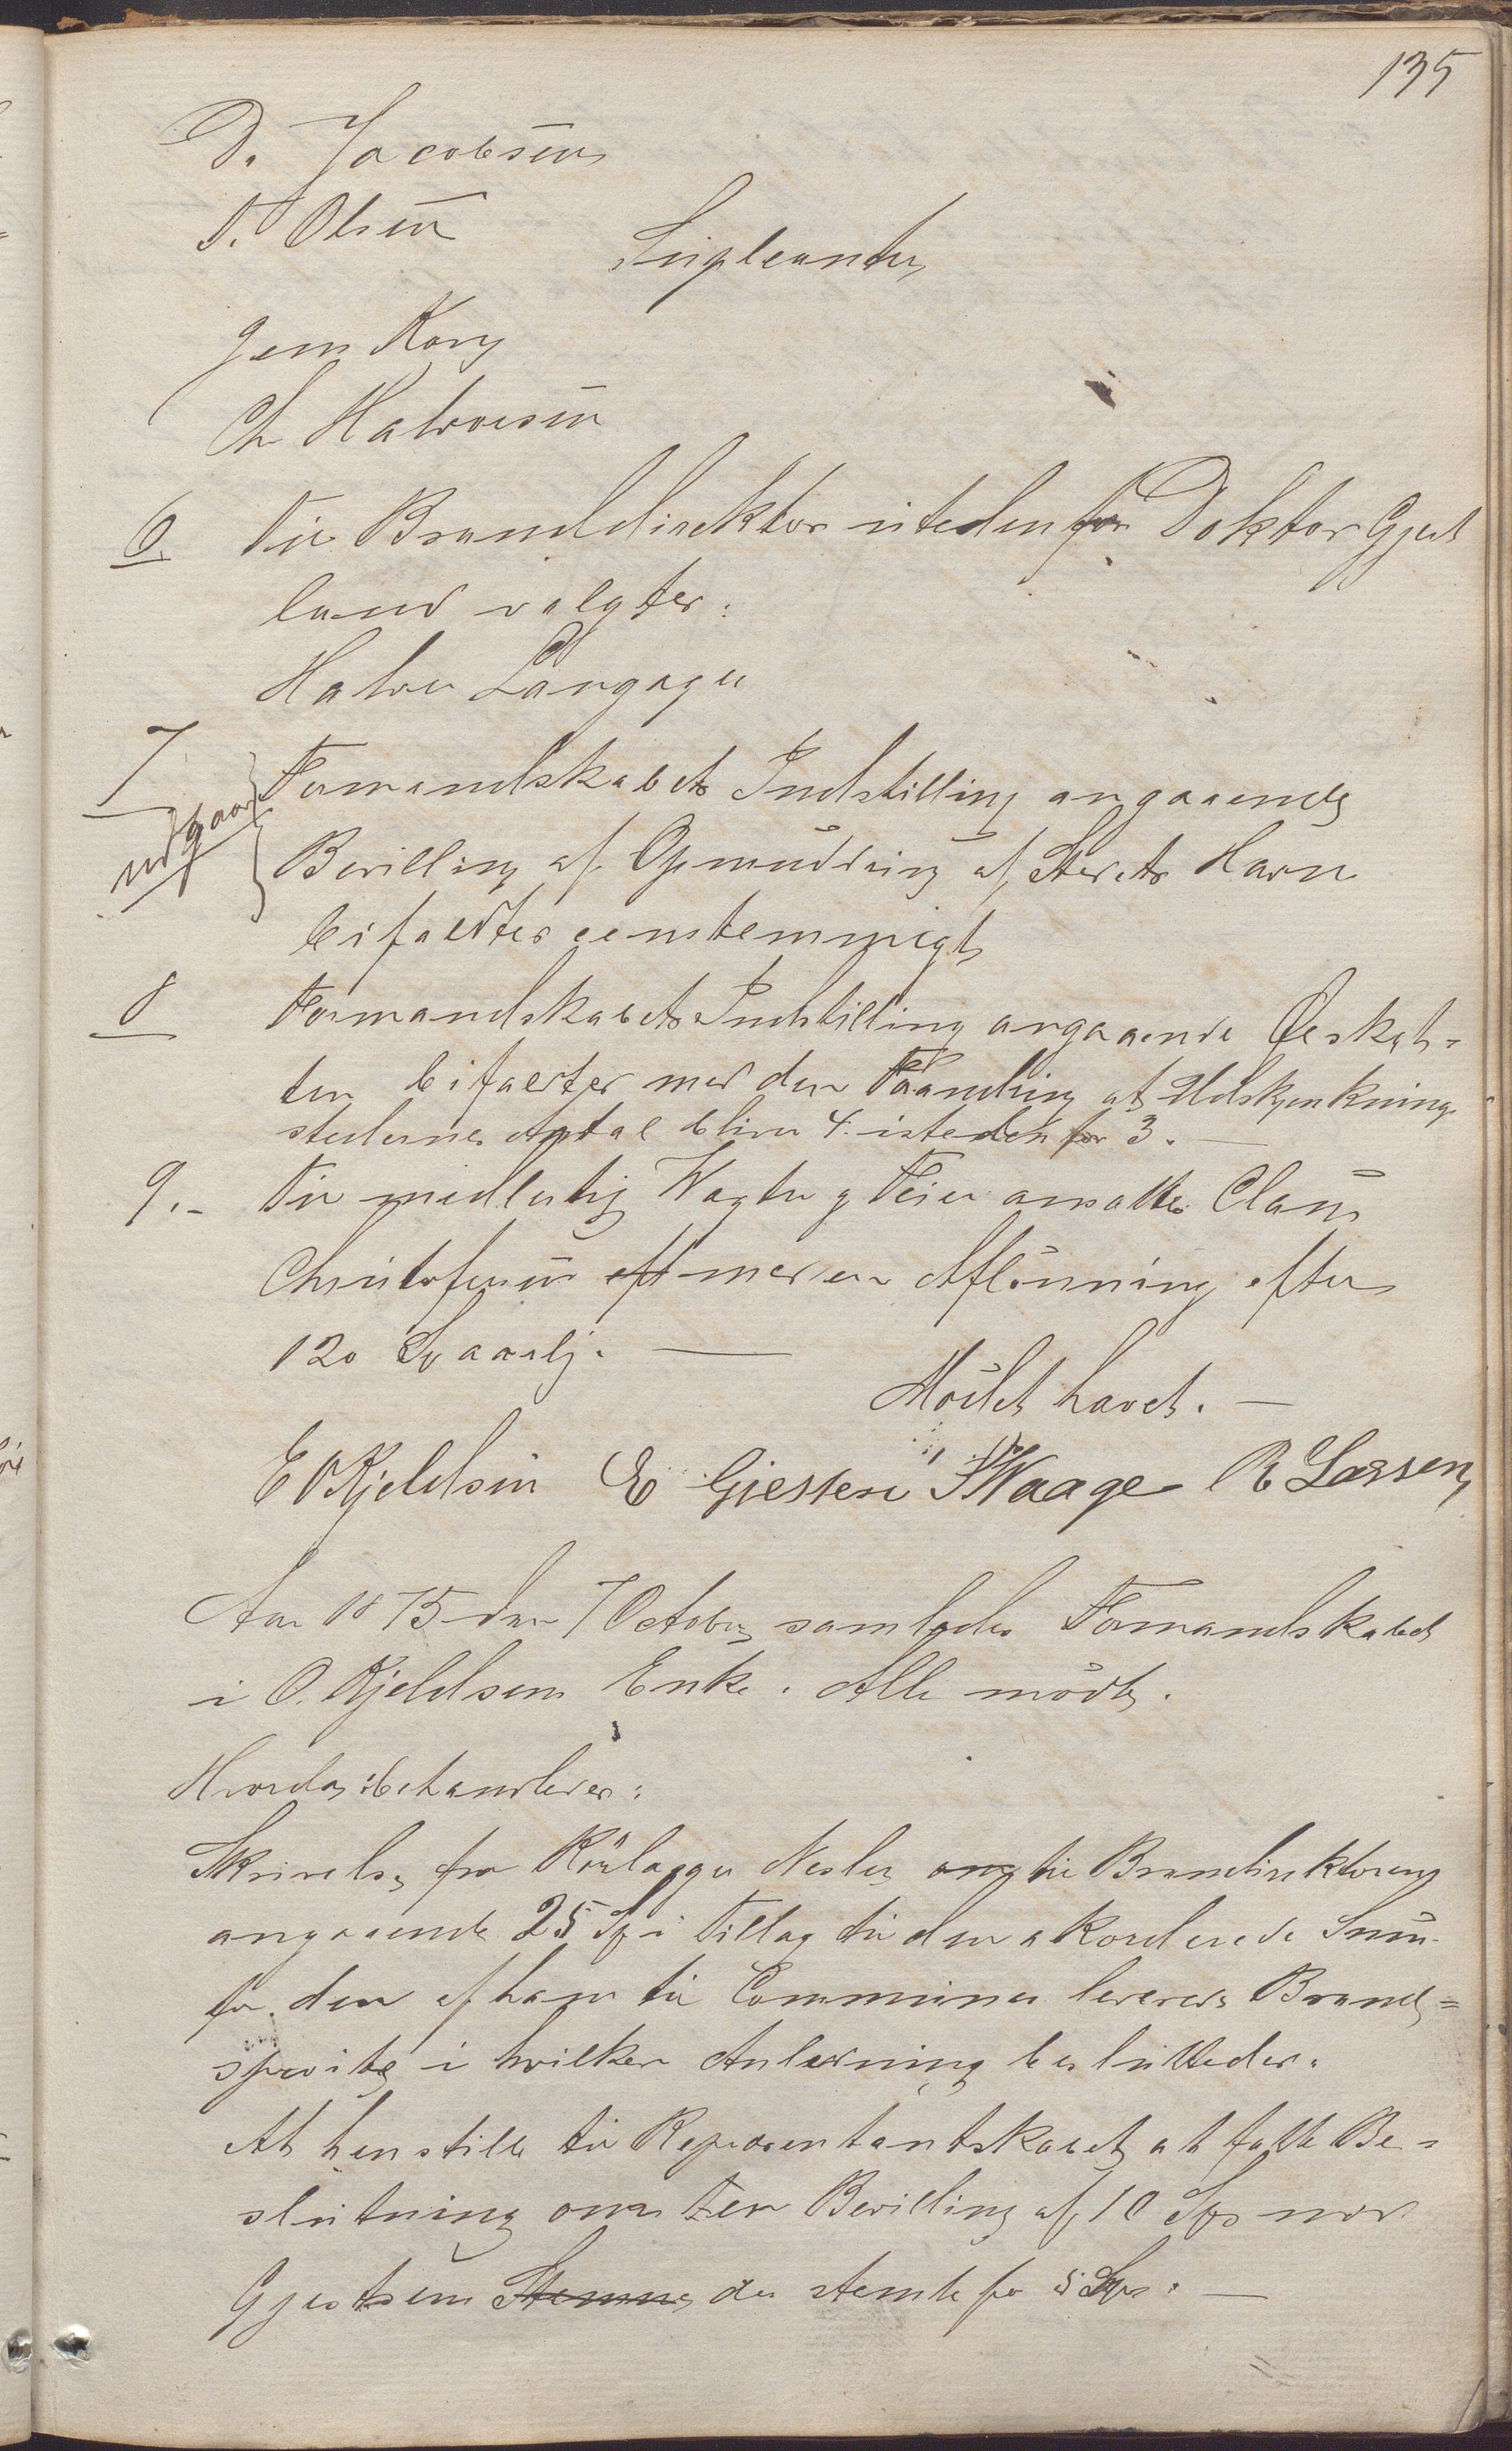 135
D. Jacobsen
T. Olsen
Supleanter
Jens Kory
Ch Halvorsen
6. Til Branddirektør istedenfor Doktor Gjest
land valgtes:
Halvor Langager
7. Formandskabets Indstilling angaaende
udgaar
Bevilling af Opmudring af Stedets Havn
bifaldtes eenstemmigt
8 Formandskabets Indstilling angaaende Øeskat-
ten bifaldtes med den Forandring at Udskjenknings
stedernes Antal bliver 4 istedenfor 3. —
9.- Til midlertidig Vagter og Feier ansattes Claus
Christofersen med en Aflønning efter
120 Sp aarlig. —
Mödet hævet. —
E O Kjeldsen E Giestesen S Waage R Larsen
Aar 1875 den 7 October samledes Formandskabet
i O. Kjeldsens Enke. Alle mödte.
Hvorda behandledes:
Skrivelse fra Rörlægger Nesler til Branddirektoren
angaaende 25 Sp i Tillæg til den akorderede Sum
for den af ham til Communen leverede Brand=
spröite i hvilken Anledning besluttedes:
At henstille til Representantskabet at fatte Be=
slutning om en Bevilling af 10 Sps mod
Gjestesens Stemme der stemte for 5 Sps. —